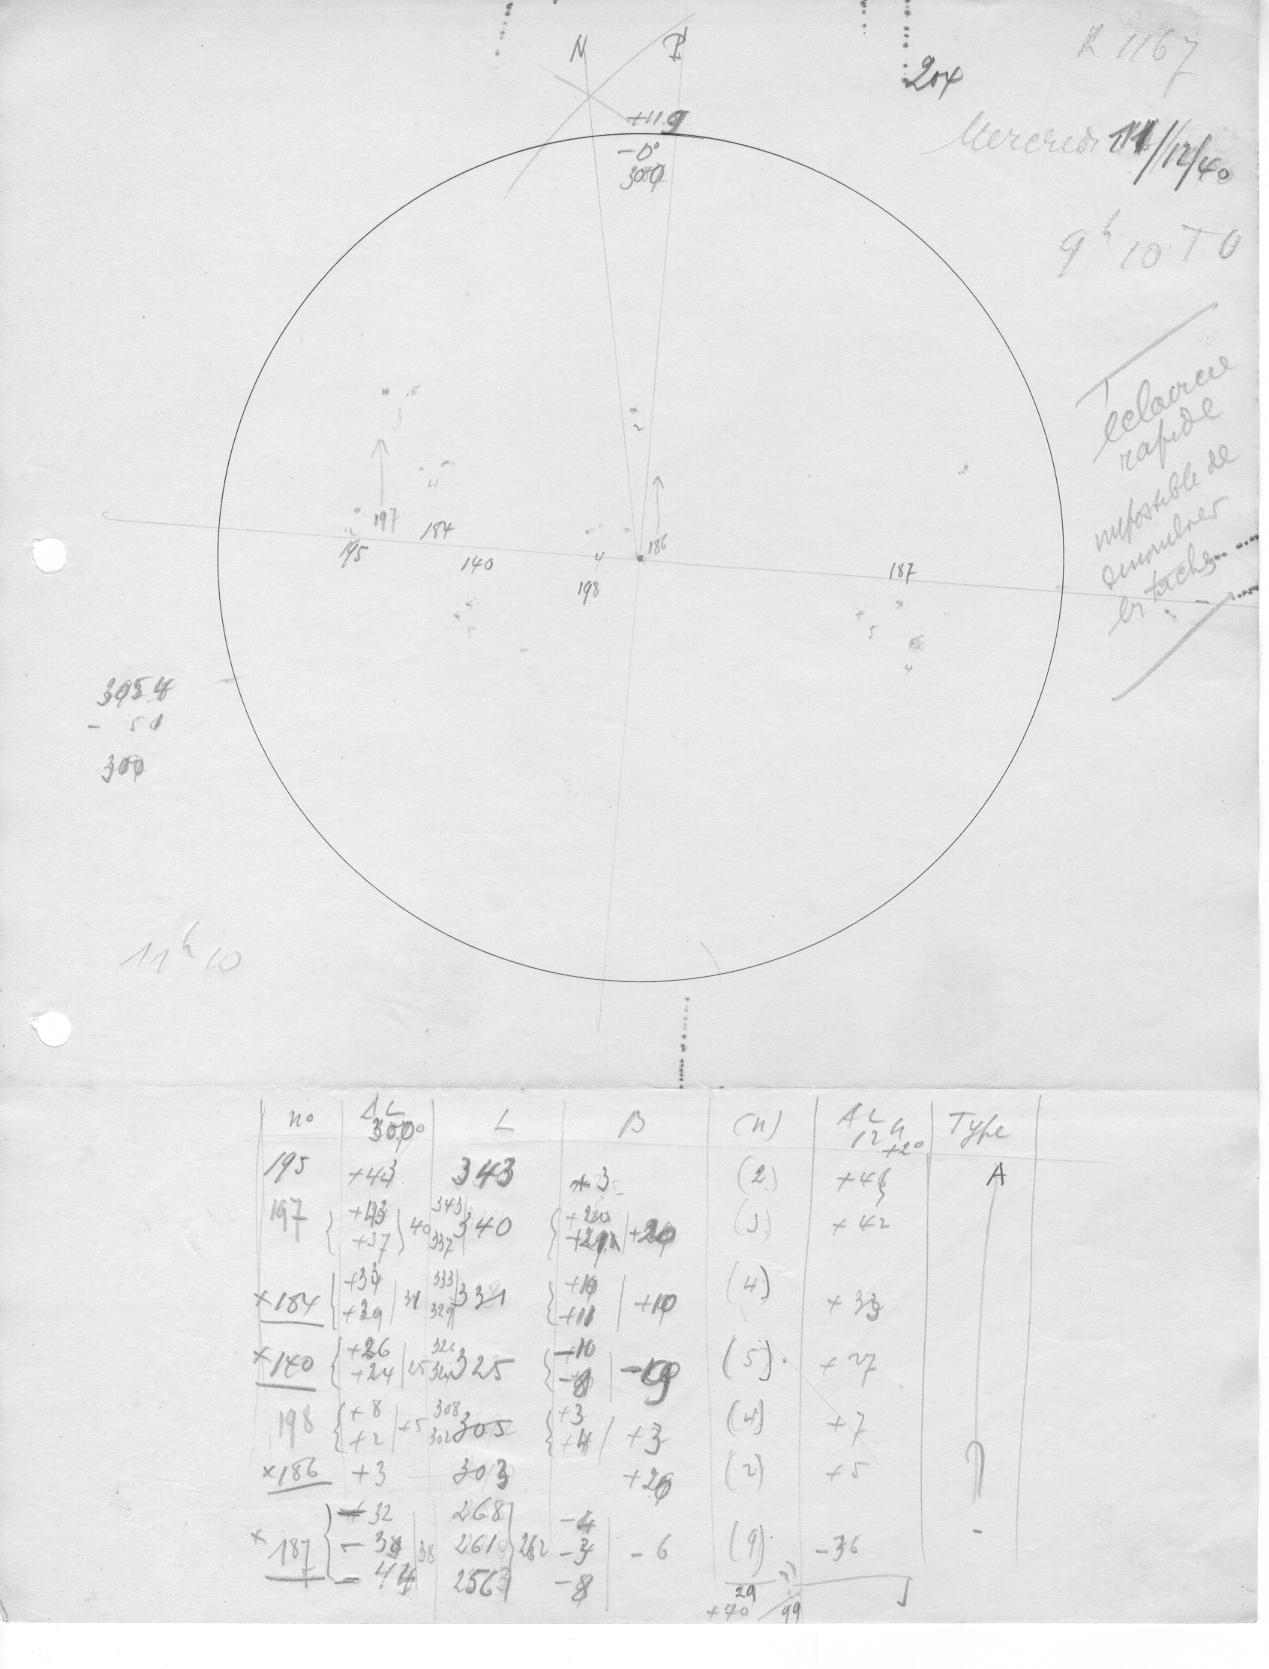 N P
R 1167
204
+11.9
Mercredi 11/12/40
-0°
300
9h 10 T U
Eclaircie
rapide
impossible de
dénombrer
les taches
5
3
2
4
197
184
195
140
4
186
198
187
5
5
4
305.4
- 5.4
300
11h 10
no ΔL 300° L B (n) ΔL 12h +2° Type
195 +43 343 (2) A
197 +43 +37 40 343 337 340 +20 +20 (3) +42
×184 +29 31 333 329 331 +10 +11 +10 (4) +33
×140 +26 +24 25 325 -10 (5) +27
198 +8 +2 +5 308 302 305 +3 +4 +3 (4) +7
×186 +3 303 +20 (2) +5
×187 -32 -38 -44 38 268 261 256 262 -4 -3 -8 -6 (9) -36 -
29
+70 / 99